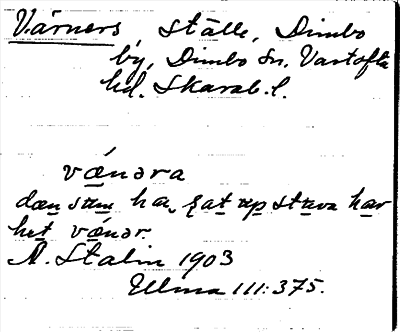 Värners, ställe, Dimbo
by, Dimbo sn. Vartofta
hd. Skarab. l.
vǽnəra
dæn sum ha, sat up stuva har
het vǽnər.
A. Stalin 1903
Ullma 111:375.